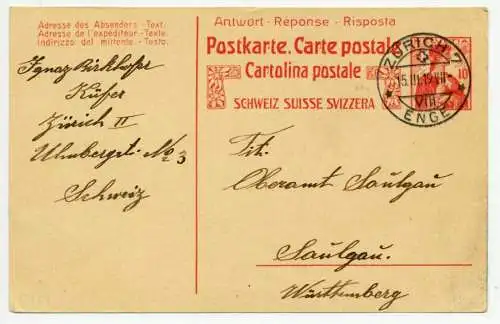 Adresse des Absenders - Text.
Adresse de l'expéditeur - Texte.
Indirizzo del mittente - Testo.
Ignaz Birkhofer
Küfer
Zürich II
Uhnbergstr. No 3
Schweiz
Antwort - Réponse - Risposta
Postkarte. Carte postale
Cartolina postale
SCHWEIZ SUISSE SVIZZERA
ZÜRICH 7
15.III.19
VIII
ENGE
10
Tit.
Oberamt Saulgau
Saulgau.
Württemberg